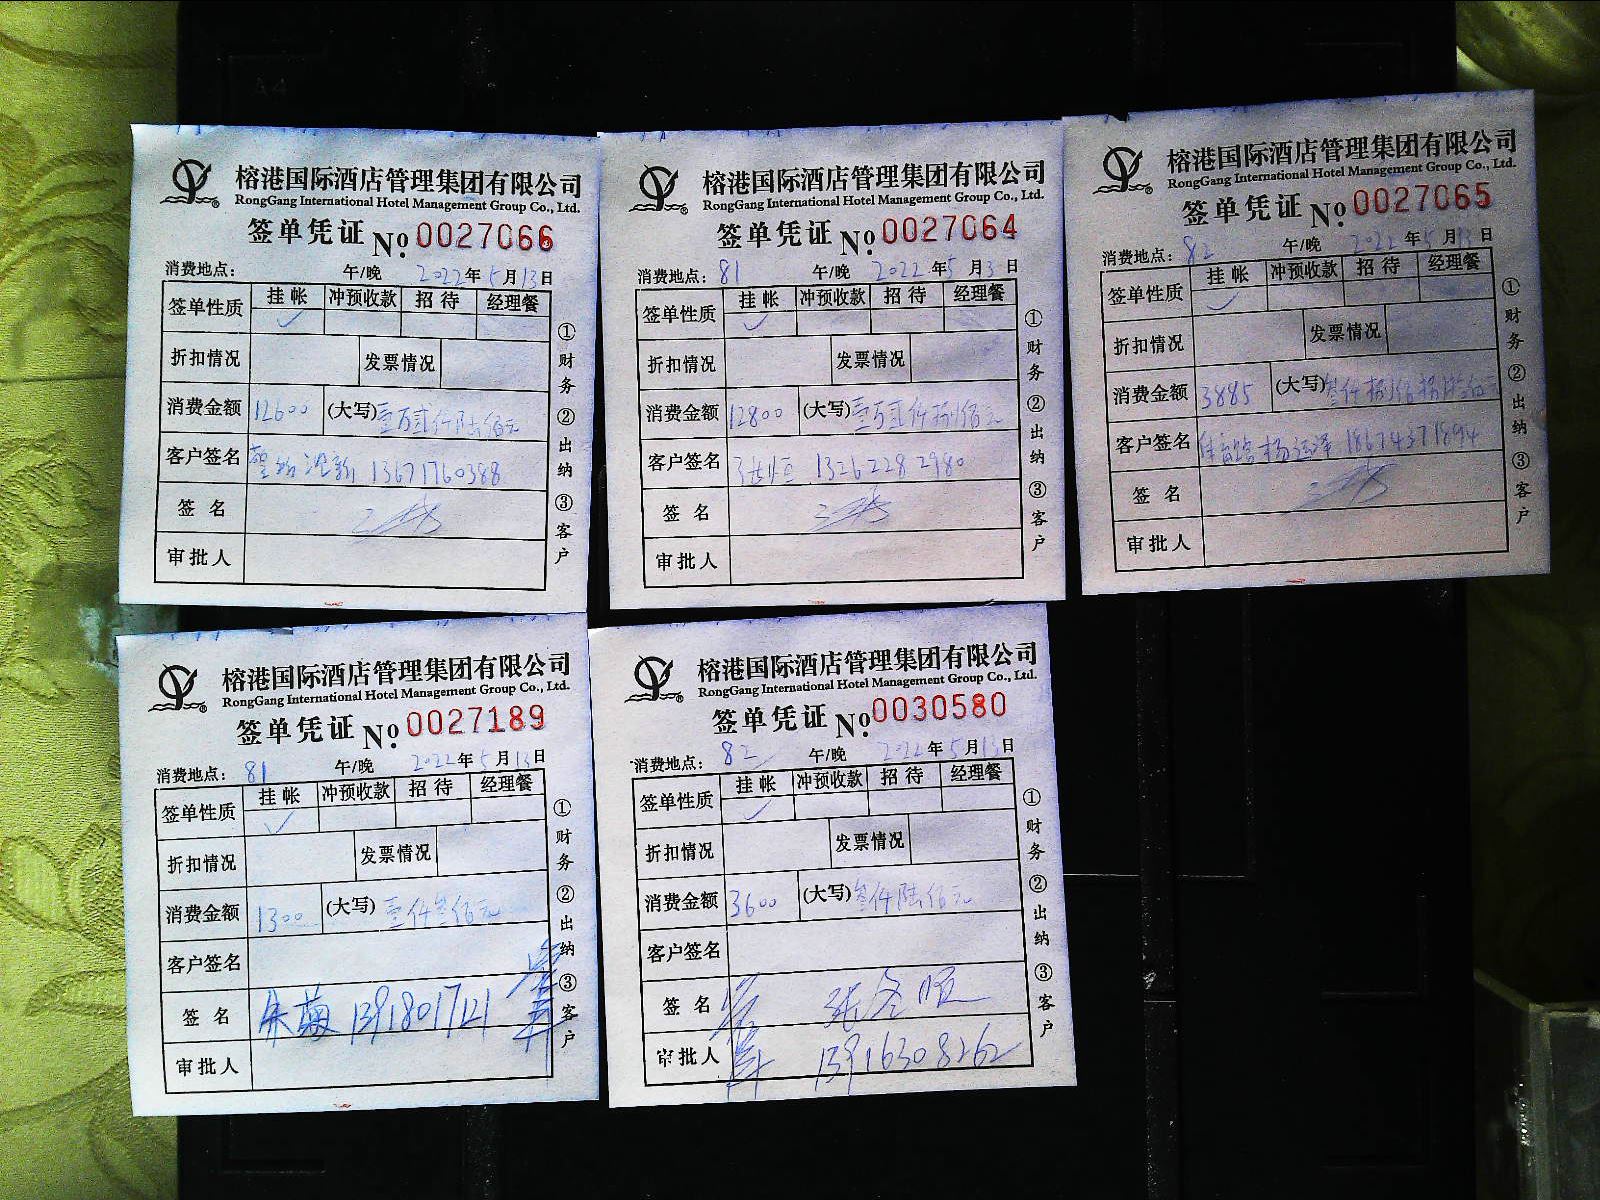 榕港国际酒店管理集团有限公司
RongGang International Hotel Management Group Co., Ltd.
签单凭证 No. 0027066
消费地点： 午/晚 2022年5月13日
签单性质 挂帐 冲预收款 招待 经理餐
✓
折扣情况 发票情况
消费金额 12600 (大写) 壹万贰仟陆佰元
客户签名 13671760388
签名
审批人
①财务 ②出纳 ③客户
榕港国际酒店管理集团有限公司
RongGang International Hotel Management Group Co., Ltd.
签单凭证 No. 0027064
消费地点： 81 午/晚 2022年5月3日
签单性质 挂帐 冲预收款 招待 经理餐
✓
折扣情况 发票情况
消费金额 12800 (大写) 壹万贰仟捌佰元
客户签名 13262282980
签名
审批人
①财务 ②出纳 ③客户
榕港国际酒店管理集团有限公司
RongGang International Hotel Management Group Co., Ltd.
签单凭证 No. 0027065
消费地点： 82 午/晚 2022年5月13日
签单性质 挂帐 冲预收款 招待 经理餐
✓
折扣情况 发票情况
消费金额 3885 (大写) 叁仟捌佰捌拾伍元
客户签名 18674371894
签名
审批人
①财务 ②出纳 ③客户
榕港国际酒店管理集团有限公司
RongGang International Hotel Management Group Co., Ltd.
签单凭证 No. 0027189
消费地点： 81 午/晚 2022年5月13日
签单性质 挂帐 冲预收款 招待 经理餐
✓
折扣情况 发票情况
消费金额 1300 (大写) 壹仟叁佰元
客户签名
签名 朱梅 13918017121
审批人
①财务 ②出纳 ③客户
榕港国际酒店管理集团有限公司
RongGang International Hotel Management Group Co., Ltd.
签单凭证 No. 0030580
消费地点： 82 午/晚 2022年5月13日
签单性质 挂帐 冲预收款 招待 经理餐
✓
折扣情况 发票情况
消费金额 3600 (大写) 叁仟陆佰元
客户签名
签名 张
审批人 13916308262
①财务 ②出纳 ③客户